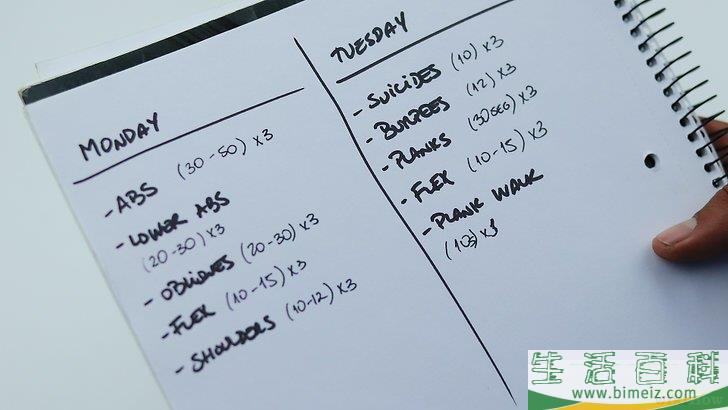 MONDAY
- ABS (30-50) x3
- LOWER ABS
(20-30) x3
- OBLIQUES (20-30) x3
- FLEX (10-15) x3
- SHOULDERS (10-12) x3
TUESDAY
- SUICIDES (10) x3
- BURPEES (12) x3
- PLANKS (30SEG) x3
- FLEX (10-15) x3
- PLANK WALK
x3
生活百科
www.bimeiz.com